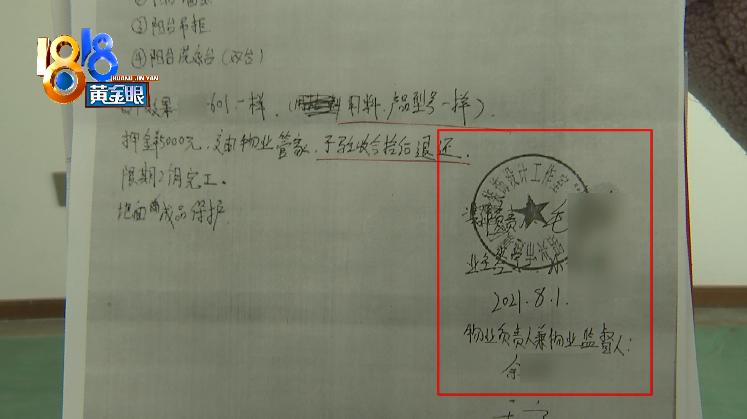 ③阳台吊柜
④阳台洗衣台(双台)
1818
HUANG JIN YAN
黄金眼
效果 601一样. (用料.产品型号一样).
押金5000元,交由物业管家,于验收合格后退还.
限期2月完工.
地面成品保护
装饰设计工作室
负责 毛
业主签字
2021.8.1.
物业负责人兼物业监督人:
余